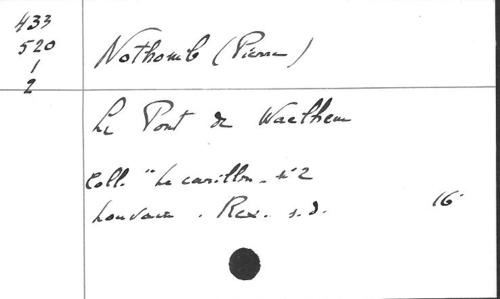 433
520
1
2
Nothomb (Pierre)
Le Pont de Waelhem
Coll. "Le carillon - n° 2
Louvain . Rex. s.d. 16°